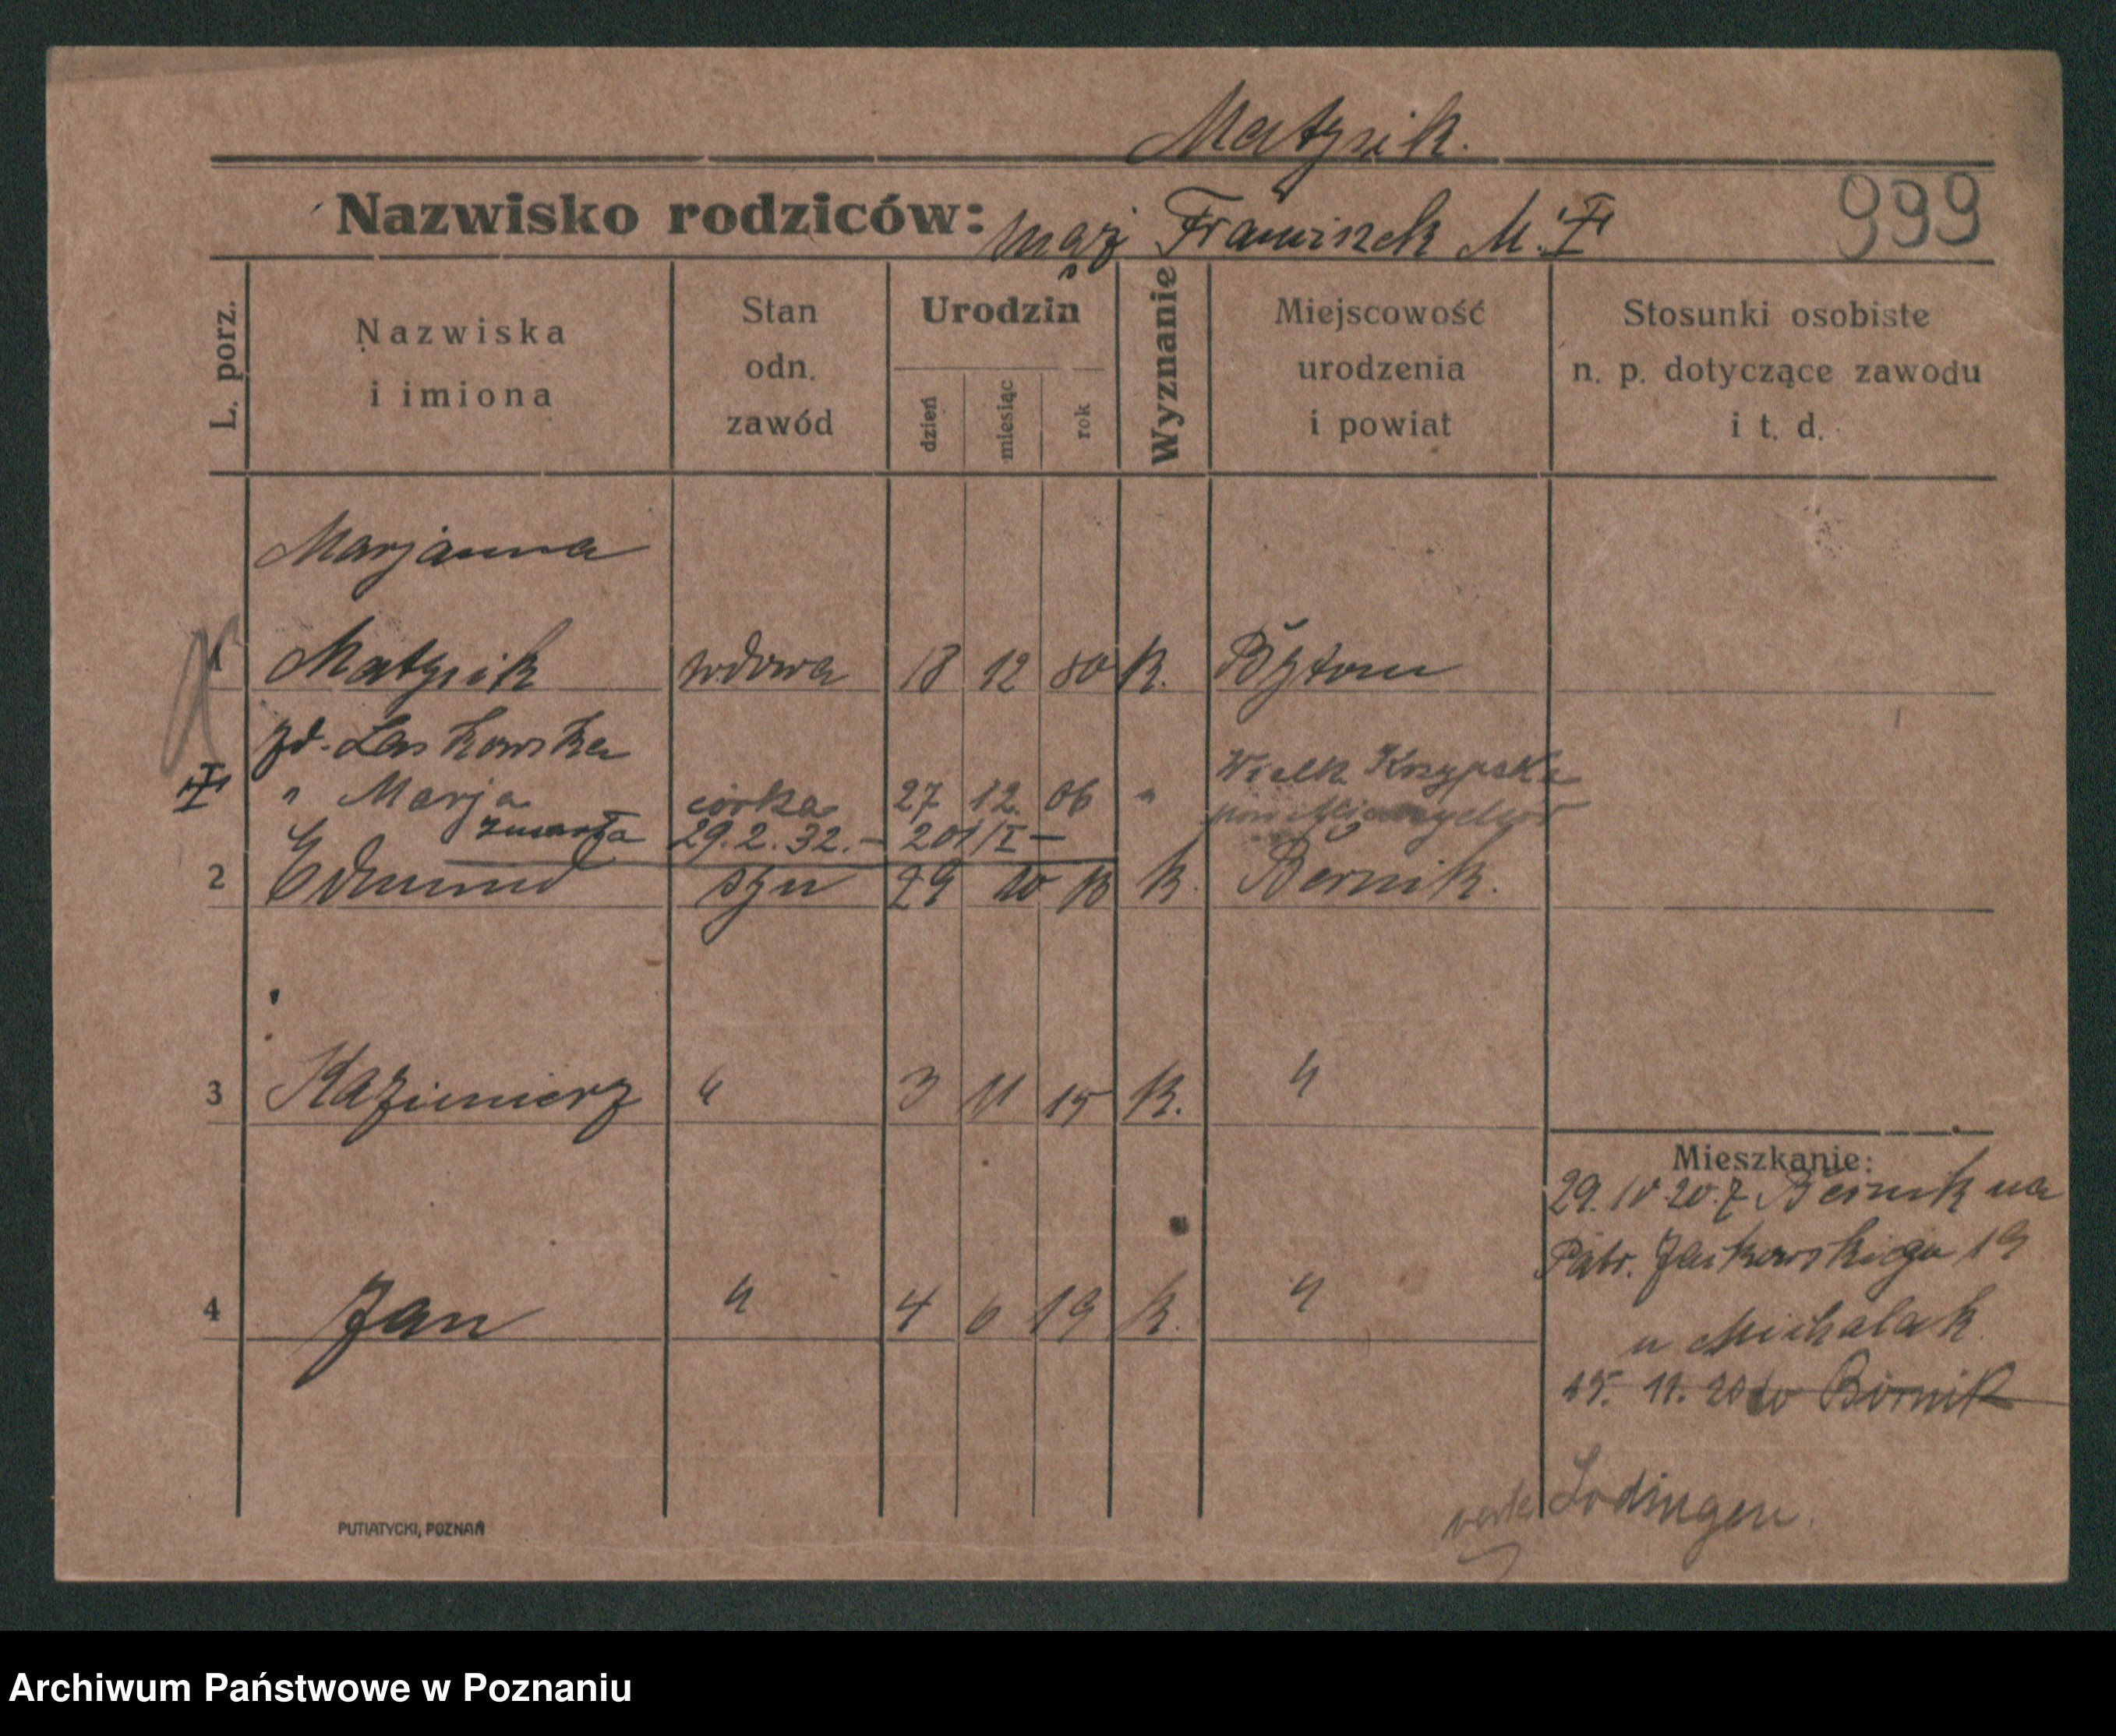 Matysik.
Nazwisko rodziców: mąż Franciszek M.
999
L. porz.
Nazwiska i imiona
Stan odn. zawód
Urodzin
dzień miesiąc rok
Wyznanie
Miejscowość urodzenia i powiat
Stosunki osobiste n. p. dotyczące zawodu i t. d.
Marjanna
1 Matysik wdowa 18 12 80 K. Bytom
zd. Laskowska
" Marja córka 27 12. 06 "
zmarła 29.2.32. – 201/I –
2 Edmund syn 29 10 K.
3 Kazimierz " 3 11 15 K. "
4 Jan " 4 6 19 K. "
Mieszkanie:
29. 10 20. z na
Patr. Jackowskiego 19
u Michalak
15. 11. 20 do
verte
PUTIATYCKI, POZNAŃ
Archiwum Państwowe w Poznaniu